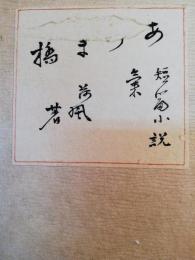 短篇小説
集
あづま橋
荷風
著